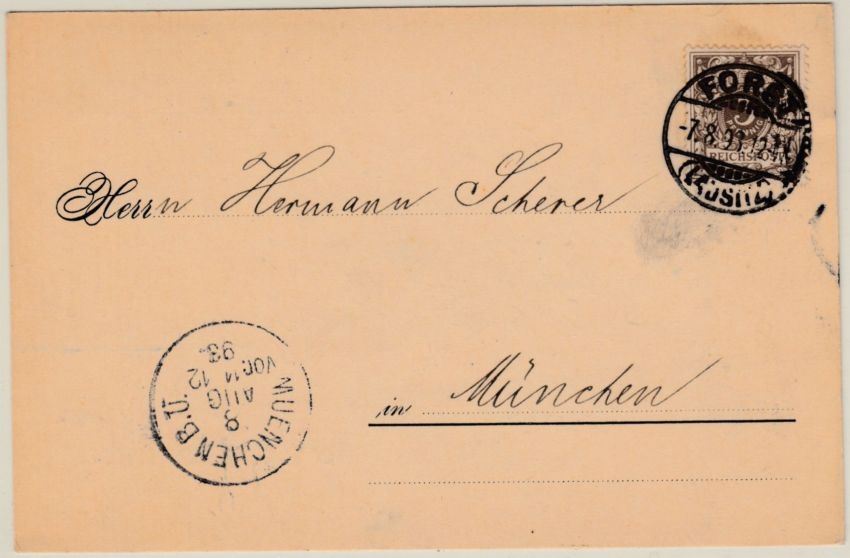 FORST
-7.8.93.
(LAUSITZ)
3
PFENNIG
REICHSPOST
Herrn Hermann Scherer
in München
MUENCHEN B.
8
AUG
VOR.11 12
93.